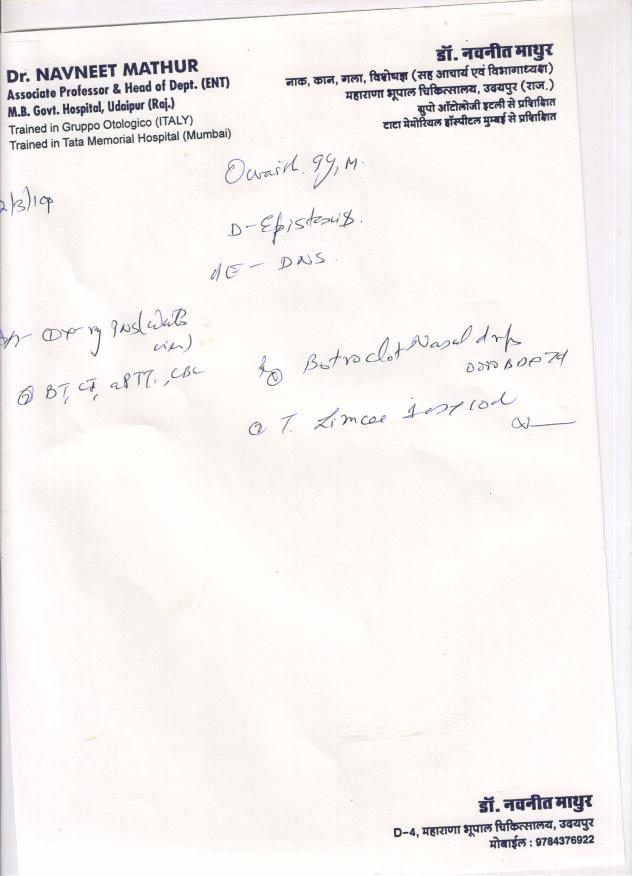 Dr. NAVNEET MATHUR
Associate Professor & Head of Dept. (ENT)
M.B. Govt. Hospital, Udaipur (Raj.)
Trained in Gruppo Otologico (ITALY)
Trained in Tata Memorial Hospital (Mumbai)
डॉ. नवनीत माथुर
नाक, कान, गला, विशेषज्ञ (सह आचार्य एवं विभागाध्यक्ष)
महाराणा भूपाल चिकित्सालय, उदयपुर (राज.)
ग्रुपो ऑटोलोजी इटली से प्रशिक्षित
टाटा मेमोरियल हॉस्पीटल मुम्बई से प्रशिक्षित
9y, M.
D-Epistaxis.
O/E - DNS.
PNS (Water
view)
② BT, CT, aPTT, CBC
① Botroclot Nasal drops
② T. Limcee 1 OD
डॉ. नवनीत माथुर
D-4, महाराणा भूपाल चिकित्सालय, उदयपुर
मोबाईल : 9784376922